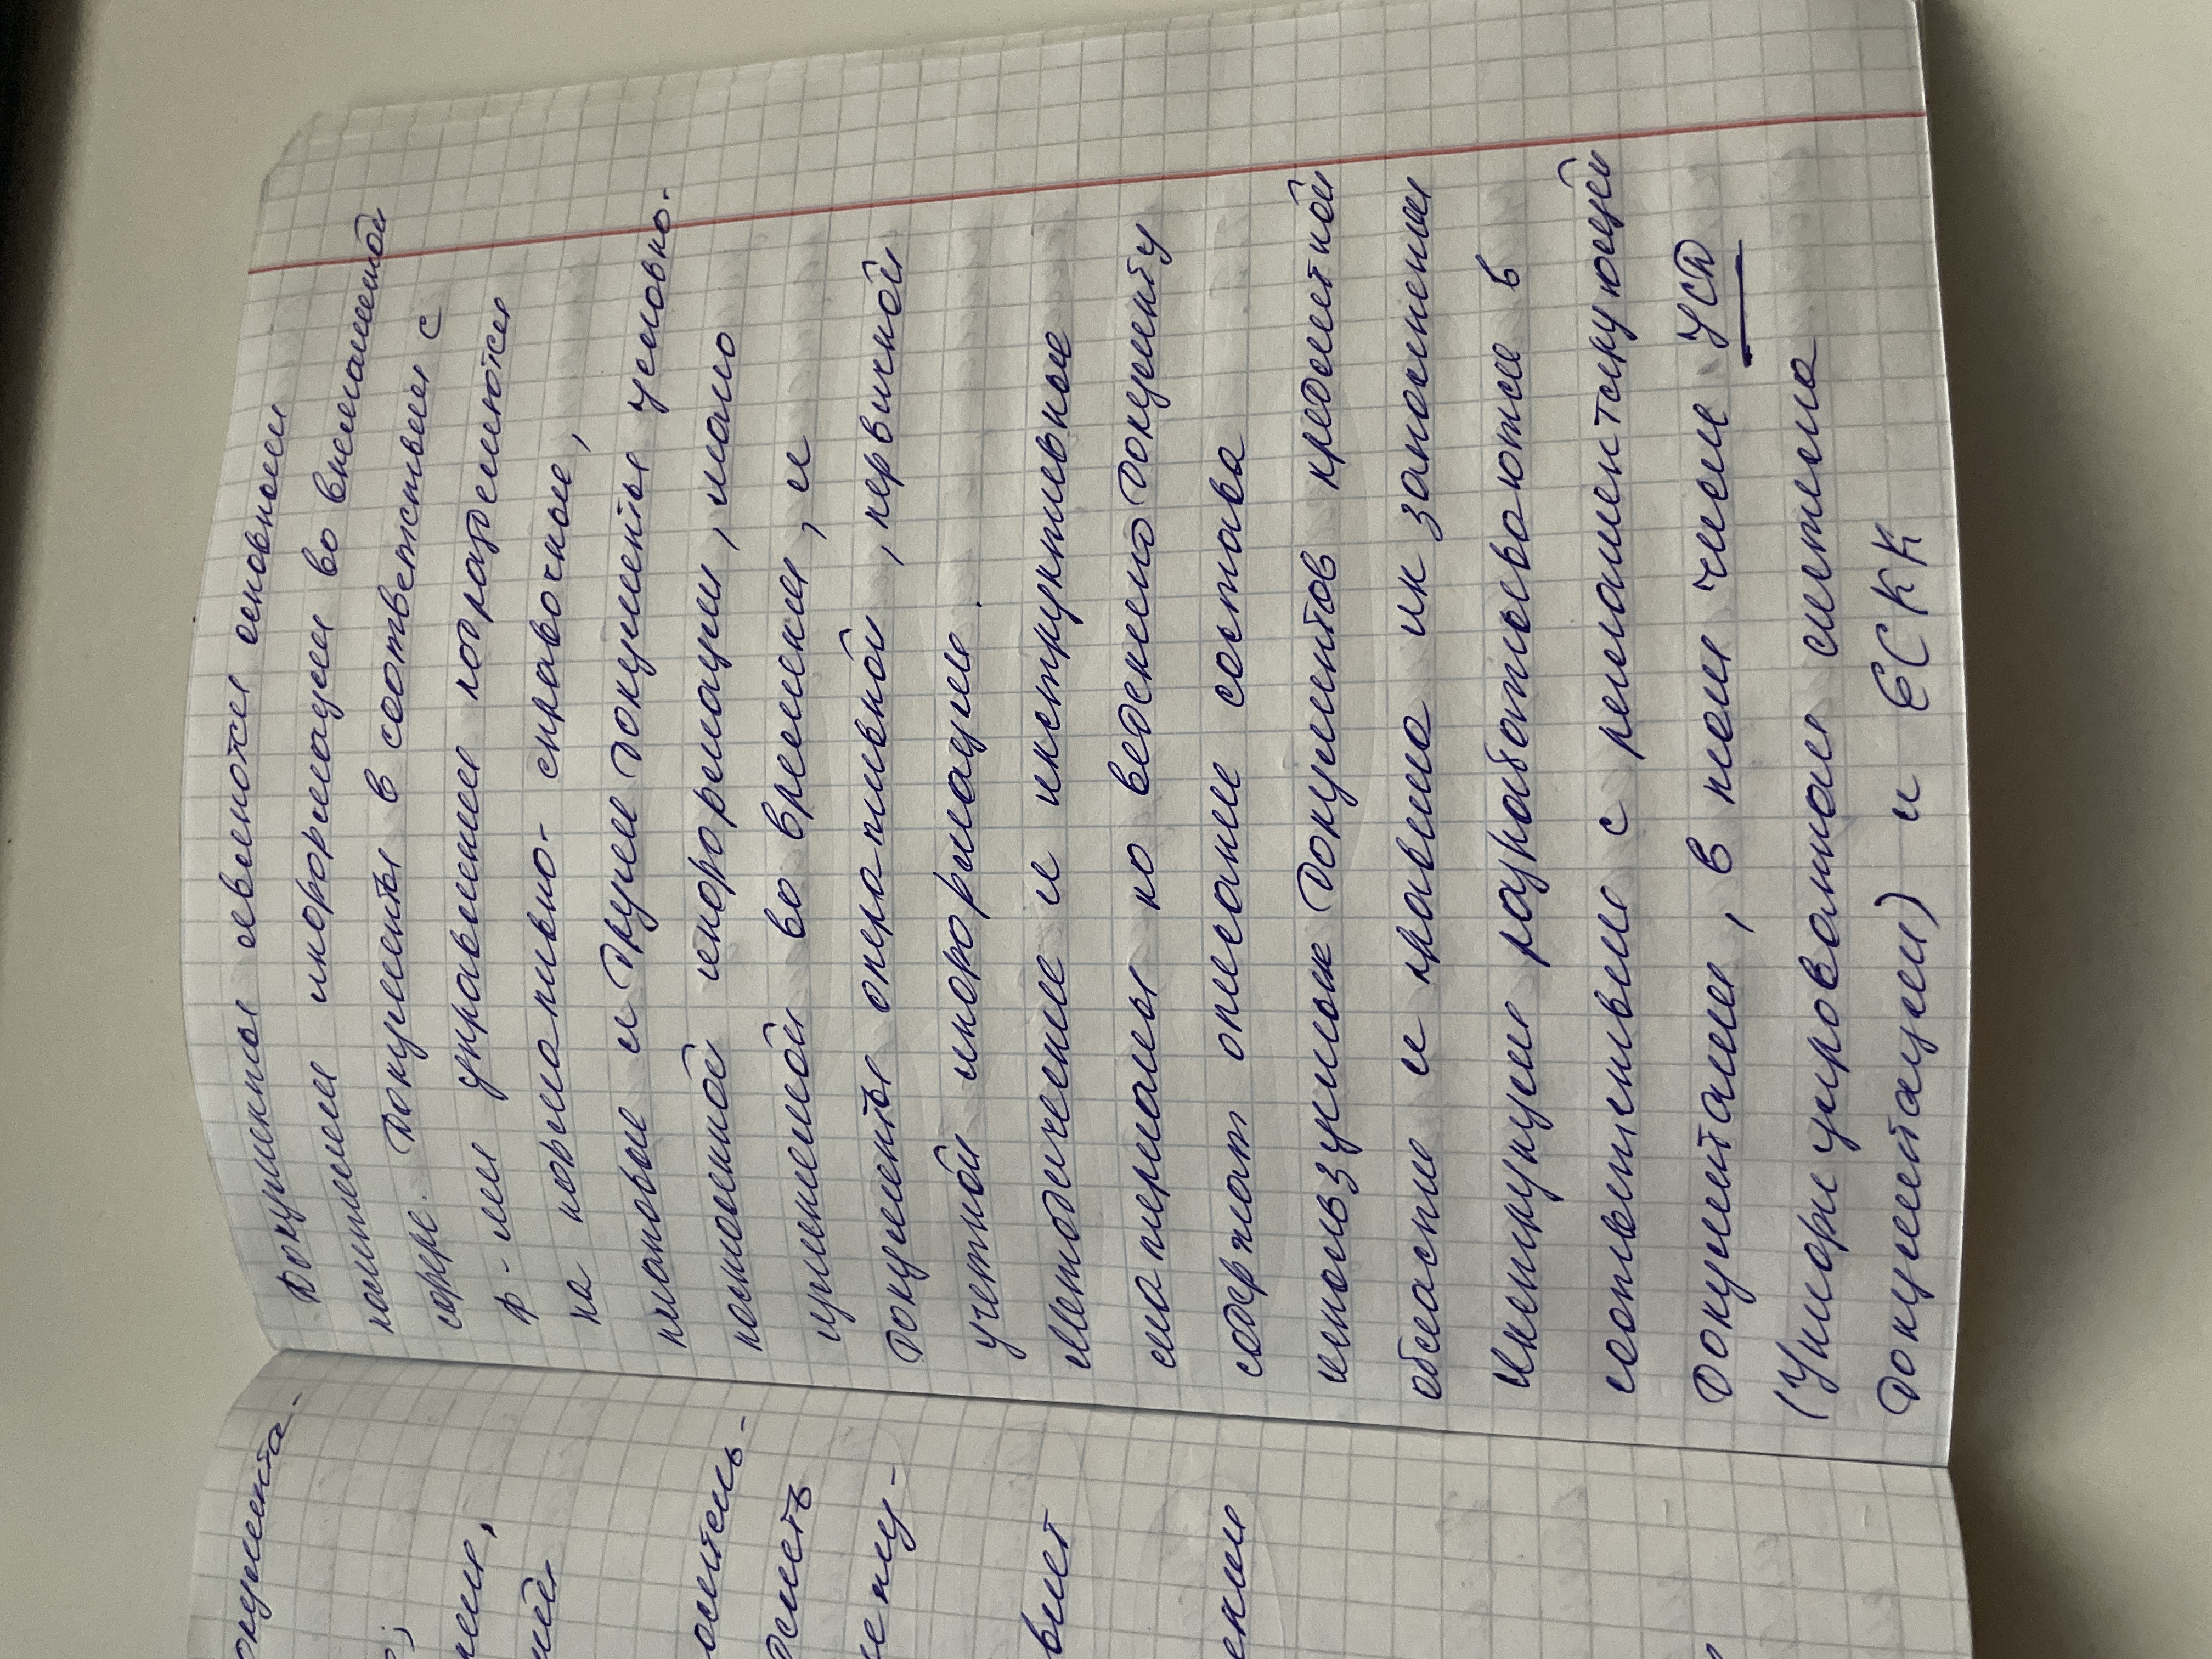 окумента.
Документы являются основным
носителем информации во внемашинной
сфере. Документы в соответствии с
ф-ями управления подразделяются
на нормативно-справочные,
плановые и другие документы условно-
постоянной информации, мало
изменяемой во времени, и
документы оперативной, первичной
учетной информации.
Методические и инструктивные
материалы по ведению документу
содержат описание состава
используемых документов предметной
области и правила их заполнения
Инструкции разрабатываются в
соответствии с регламентирующей
документации, в том числе УСД
(Унифицированная система
документации) и ЕСКК